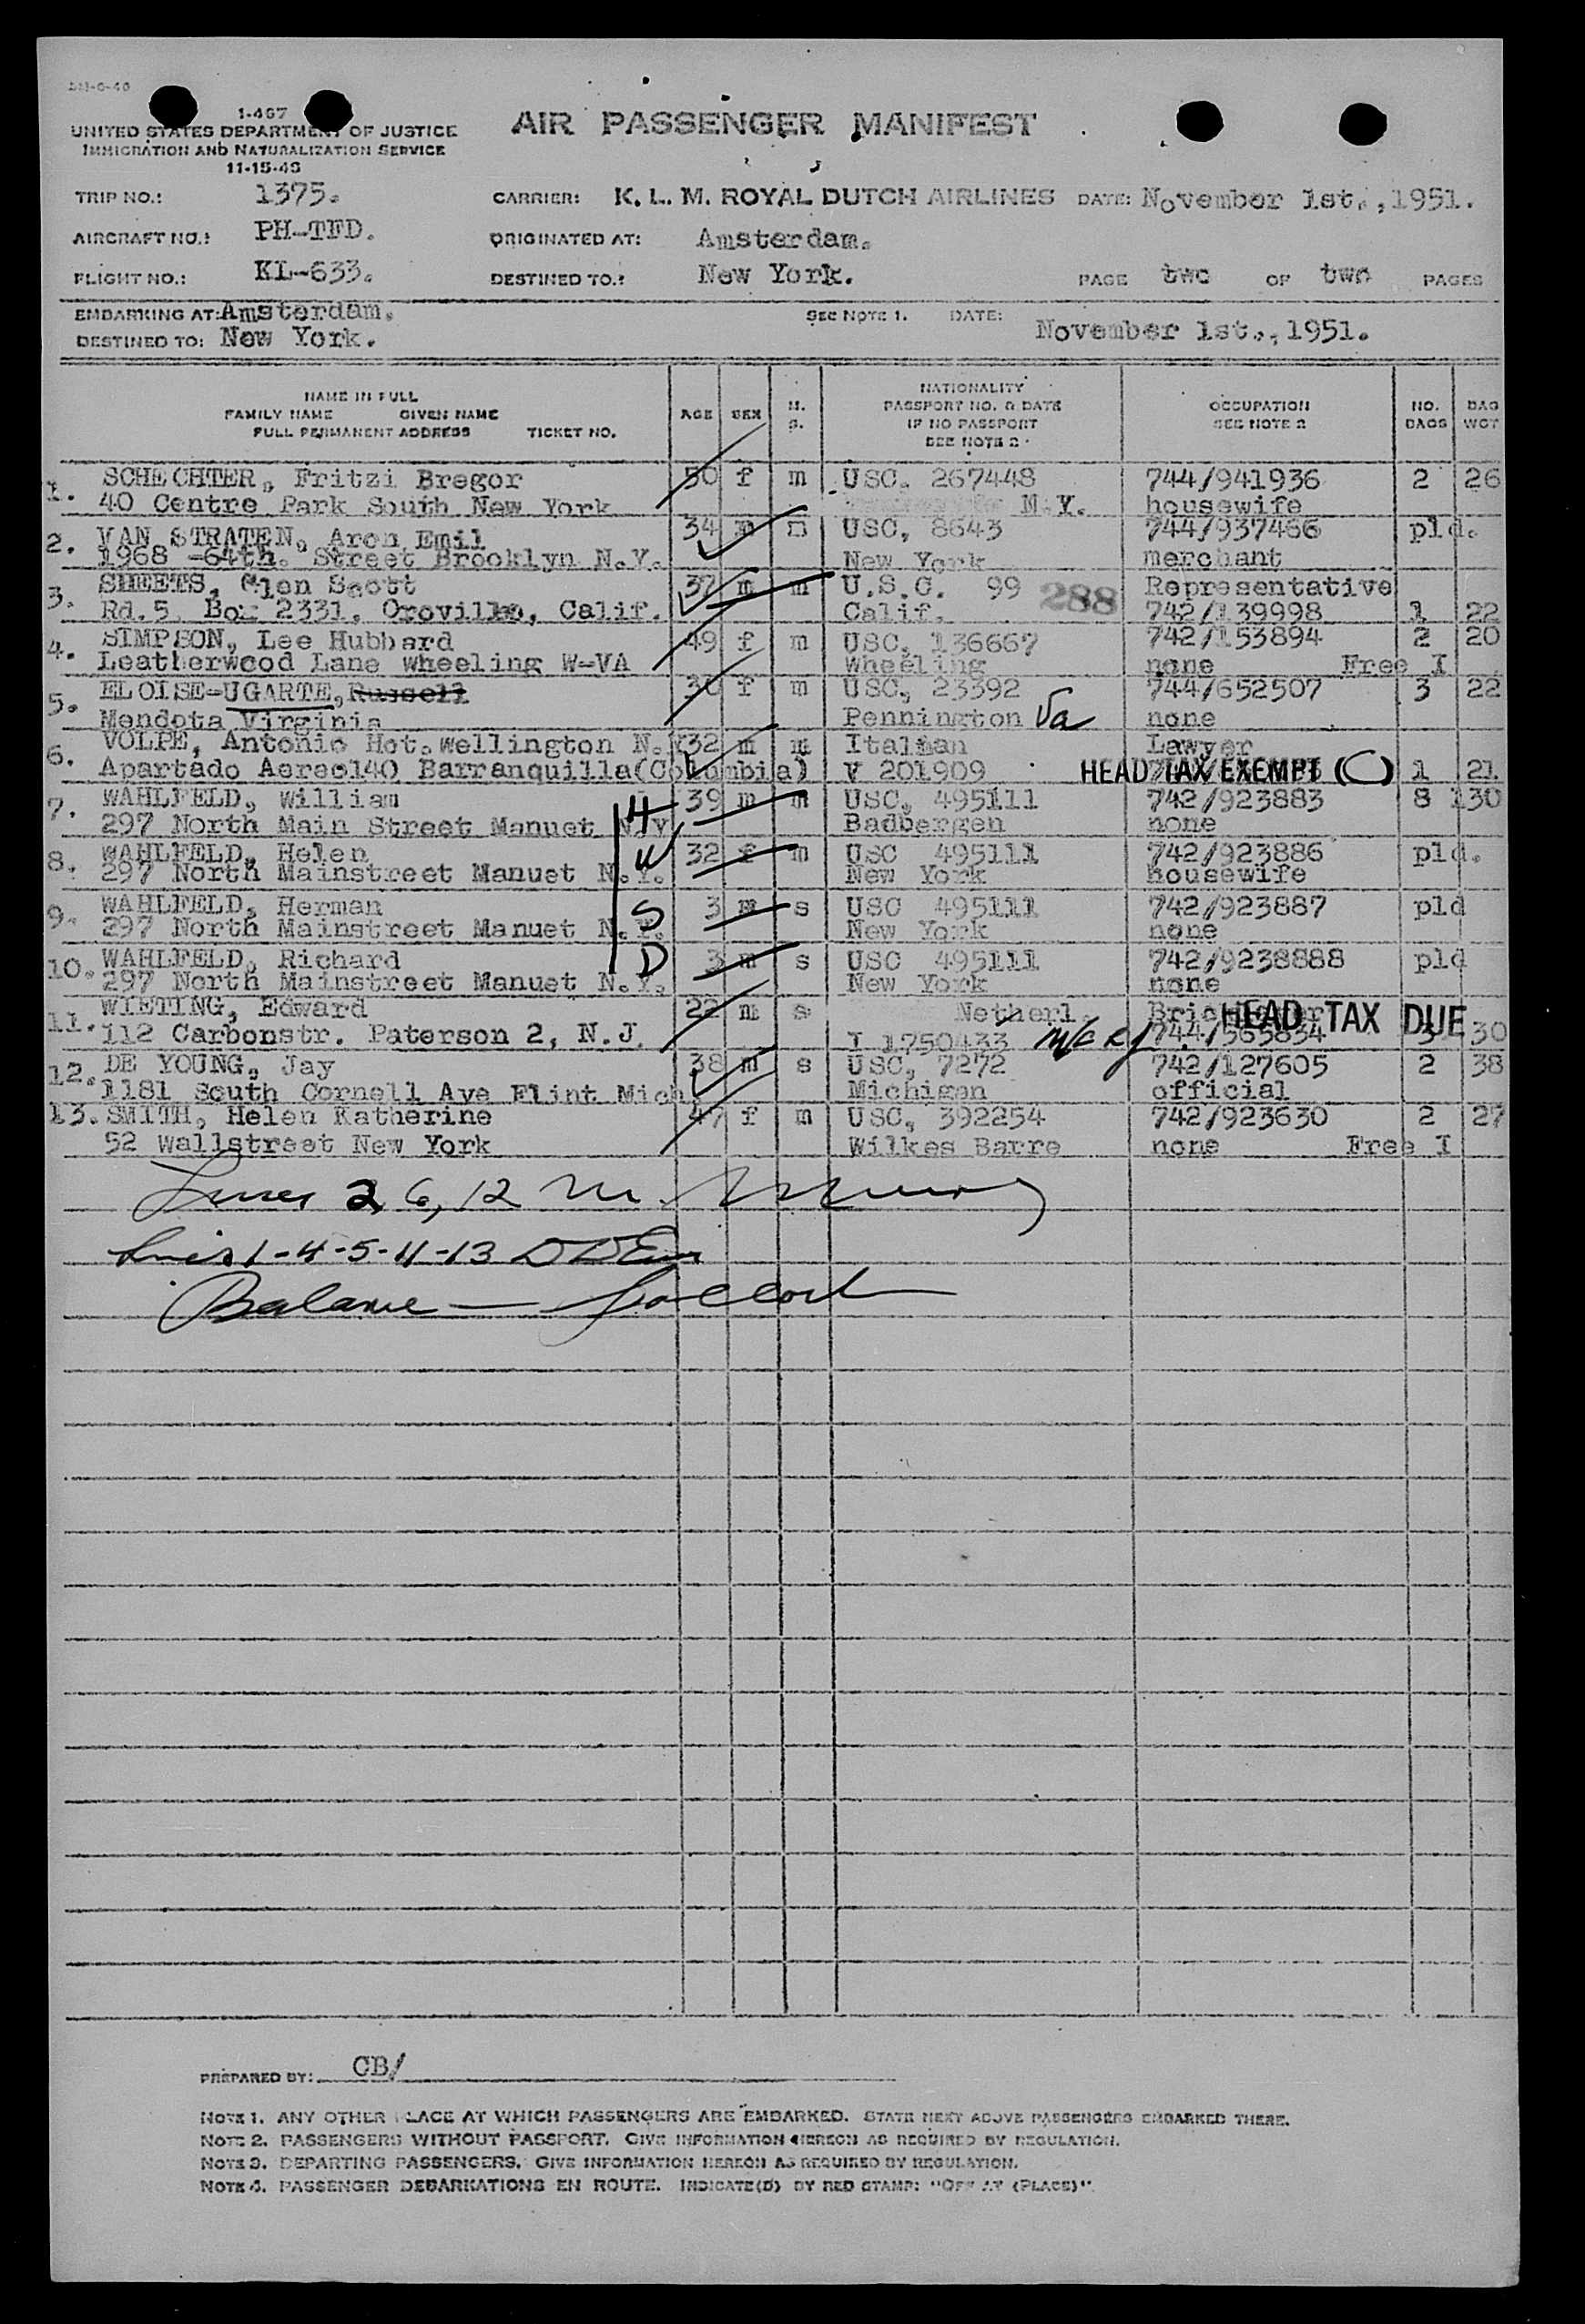 1-467
UNITED STATES DEPARTMENT OF JUSTICE
IMMIGRATION AND NATURALIZATION SERVICE
11-15-48
AIR PASSENGER MANIFEST
TRIP NO.: 1375. CARRIER: K. L. M. ROYAL DUTCH AIRLINES DATE: November 1st.,1951.
AIRCRAFT NO.: PH-TFD. ORIGINATED AT: Amsterdam.
FLIGHT NO.: KL-633. DESTINED TO.: New York. PAGE two OF two PAGES
EMBARKING AT: Amsterdam. SEE NOTE 1. DATE: November 1st.,1951.
DESTINED TO: New York.
NAME IN FULL
FAMILY NAME GIVEN NAME
FULL PERMANENT ADDRESS TICKET NO.
AGE SEX M. S.
NATIONALITY
PASSPORT NO. & DATE
IF NO PASSPORT
SEE NOTE 2
OCCUPATION
SEE NOTE 2
NO. BAGS
BAG WGT
1. SCHECHTER, Fritzi Bregor 50 f m USC. 267448 744/941936 2 26
40 Centre Park South New York N.Y. housewife
2. VAN STRATEN, Aron Emil 34 m m USC, 8643 744/937466 pld.
1968 -64th. Street Brooklyn N.Y. New York merchant
3. SHEETS, Glen Scott 37 m m U.S.C. 99 288 Representative
Rd.5. Box 2331, Oroville, Calif. Calif. 742/139998 1 22
4. SIMPSON, Lee Hubbard 49 f m USC. 136667 742/153894 2 20
Leatherwood Lane Wheeling W-VA Wheeling none Free I
5. ELOISE-UGARTE, Russell 30 f m USC, 23392 744/652507 3 22
Mendota Virginia Pennington Va none
6. VOLPE, Antonio Hot.Wellington N.Y 32 m m Italian Lawyer
Apartado Aereo140 Barranquilla(Columbia) V 201909 HEAD TAX EXEMPT (C) 1 21
7. WAHLFELD, William H 39 m m USC, 495111 742/923883 8 130
297 North Main Street Manuet N.Y Badbergen none
8. WAHLFELD, Helen W 32 f m USC 495111 742/923886 pld.
297 North Mainstreet Manuet N.Y. New York housewife
9. WAHLFELD, Herman S 3 m s USC 495111 742/923887 pld
297 North Mainstreet Manuet N.Y. New York none
10. WAHLFELD, Richard D 3 m s USC 495111 742/9238888 pld
297 North Mainstreet Manuet N.Y. New York none
11. WIETING, Edward 22 m s Netherl. HEAD TAX DUE
112 Carbonstr. Paterson 2, N.J. I 1750433 744/565834 3 30
12. DE YOUNG, Jay 38 m s USC, 7272 742/127605 2 38
1181 South Cornell Ave Flint Mich Michigan official
13. SMITH, Helen Katherine 47 f m USC, 392254 742/923630 2 27
52 Wallstreet New York Wilkes Barre none Free I
Lines 2, 6, 12
Lines 1-4-5-11-13
Balance —
PREPARED BY: CB/
NOTE 1. ANY OTHER PLACE AT WHICH PASSENGERS ARE EMBARKED. STATE NEXT ABOVE PASSENGERS EMBARKED THERE.
NOTE 2. PASSENGERS WITHOUT PASSPORT. GIVE INFORMATION HEREON AS REQUIRED BY REGULATION.
NOTE 3. DEPARTING PASSENGERS. GIVE INFORMATION HEREON AS REQUIRED BY REGULATION.
NOTE 4. PASSENGER DEBARKATIONS EN ROUTE. INDICATE(D) BY RED STAMP: "OFF AT (PLACE)".